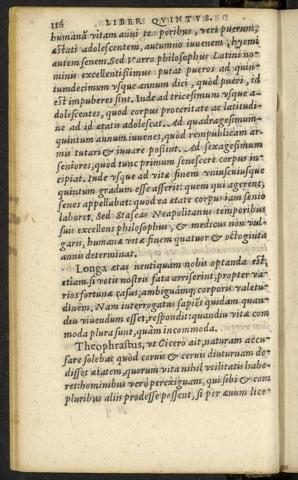 116 LIBER QVINTVS.
humanã vitam anni tẽporibus, veri puerum,
æstati adolescentem, autumno iuuenem, hyemi
autem senem. Sed Varro philosophus Latini no-
minis excellentißimus putat pueros ad quin-
tumdecimum vsque annum dici, quòd pueri, id
est impuberes sint. Inde ad tricesimum vsque a-
dolescentes, quòd corpus proceritate ac latitudi-
ne ad id ætatis adolescat. Ad quadragesimum-
quintum annum iuuenes, quòd rempublicam ar-
mis tutari & iuuare poßint. Ad sexagesimum
seniores, quòd tunc primum senescere corpus in-
cipiat. Inde vsque ad vitæ finem vniuscuiusque
quintum gradum esse asserit: quem qui agerent,
senes appellabat: quòd ea ætate corpus iam senio
laboret. Sed Staseas Neapolitanus temporibus
suis excellens philosophus, & medicus non vul-
garis, humanæ vitæ finem quatuor & octoginta
annis determinat.
Longa ætas neutiquàm nobis optanda est,
etiam si votis nostris fata arriserint, propter va-
rios fortunæ casus, ambiguamq; corporis valetu-
dinem. Nam interrogatus sapiẽs quidam quan-
diu viuendum esset, respondit: quandiu vitæ com
moda plura sunt, quàm incommoda.
Theophrastus, vt Cicero ait, naturam accu-
sare solebat quòd coruis & ceruis diuturnam de-
disset ætatem, quorum vita nihil vtilitatis habe-
ret: hominibus verò perexiguam, qui sibi & com
pluribus aliis prodesse possent, si per æuum lice-